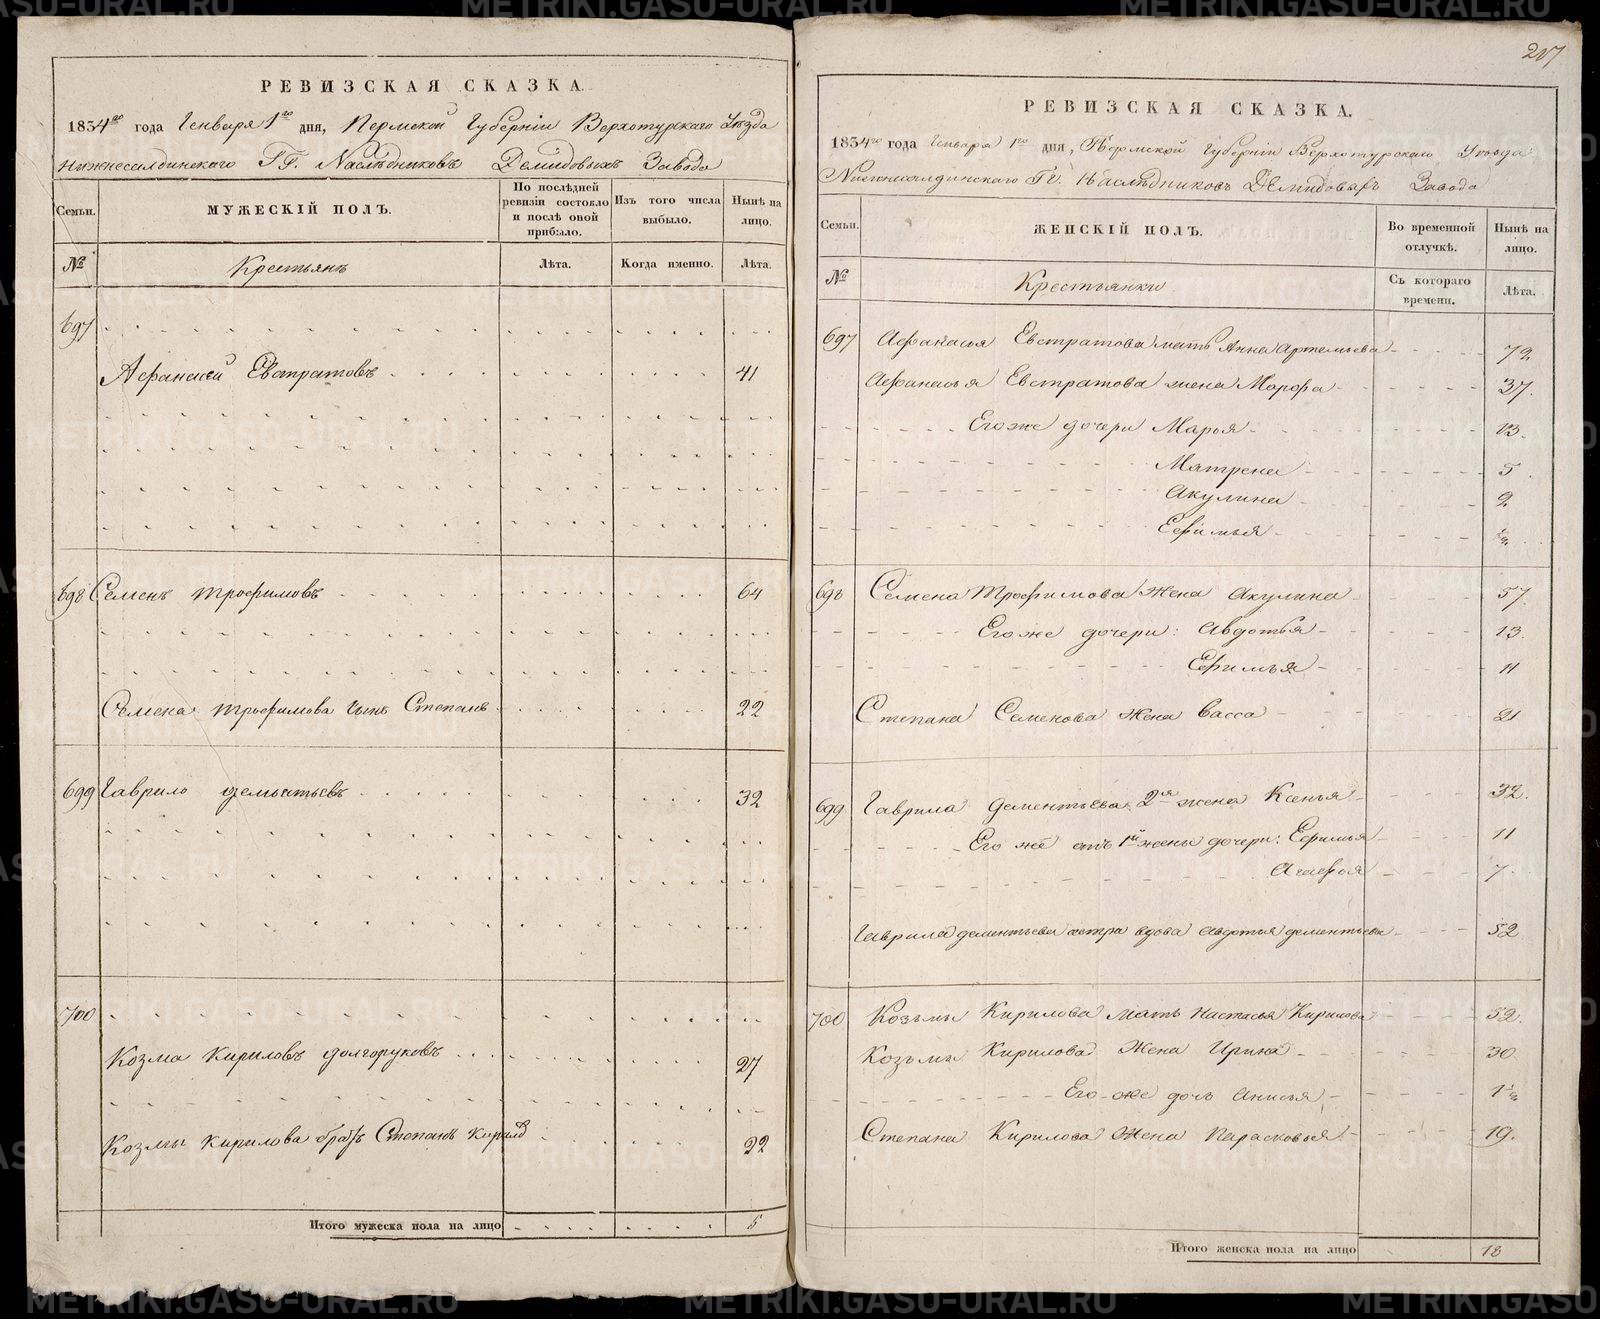 РЕВИЗСКАЯ СКАЗКА.
1834го года Генваря 1го дня, Пермской Губерніи Верхотурскаго Уѣзда
Нижнесалдинскаго ГГ. Наслѣдниковъ Демидовыхъ Завода
Семьи.
МУЖЕСКІЙ ПОЛЪ.
По послѣдней ревизіи состояло и послѣ оной прибыло.
Изъ того числа выбыло.
Нынѣ на лицо.
№
Крестьянъ
Лѣта.
Когда именно.
Лѣта.
697
Афанасей Евстратовъ 41
698 Семенъ Трофимовъ 64
Семена Трофимова сынъ Степанъ 22
699 Гаврило Дементьевъ 32
700
Козма Кириловъ Долгоруковъ 27
Козмы Кирилова братъ Степанъ Кирилов 22
Итого мужеска пола на лицо 5
217
РЕВИЗСКАЯ СКАЗКА.
1834го года Генваря 1го дня, Пермской Губерніи Верхотурскаго Уѣзда
Нижнесалдинскаго ГГ. Наслѣдниковъ Демидовыхъ Завода
Семьи.
ЖЕНСКІЙ ПОЛЪ.
Во временной отлучкѣ.
Нынѣ на лицо.
№
Крестьянки
Съ котораго времени.
Лѣта.
697 Афанасья Евстратова мать Анна Артемьева 72
Афанасья Евстратова жена Марфа 37.
Его же дочери Марья 13.
Матрена 5
Акулина 2
Ефимья ½
698 Семена Трофимова жена Акулина 57.
Его же дочери: Авдотья 13
Ефимья 11
Степана Семенова жена Васса 21
699 Гаврила Дементьева 2я жена Ксенья 32.
Его же отъ 1й жены дочери: Ефимья 11
Агафья 7.
Гаврила Дементьева сестра вдова Авдотья Дементьева 52
700 Козьмы Кирилова мать Настасья Кирилова 52.
Козьмы Кирилова жена Ирина 30.
Его же дочь Анисья 1½
Степана Кирилова жена Парасковья 19.
Итого женска пола на лицо 18
METRIKI.GASO-URAL.RU